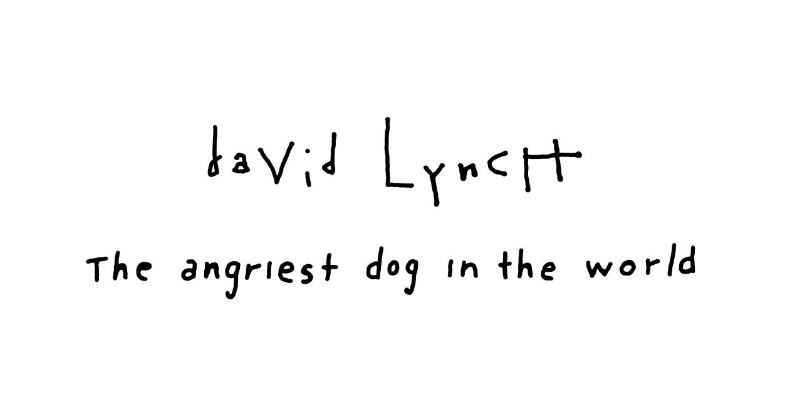 david LyncH
The angriest dog in the world